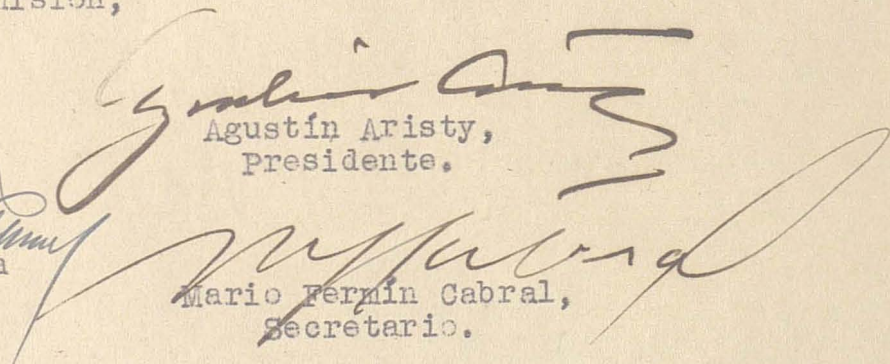 Agustín Aristy,
Presidente.
Mario Fermín Cabral,
Secretario.